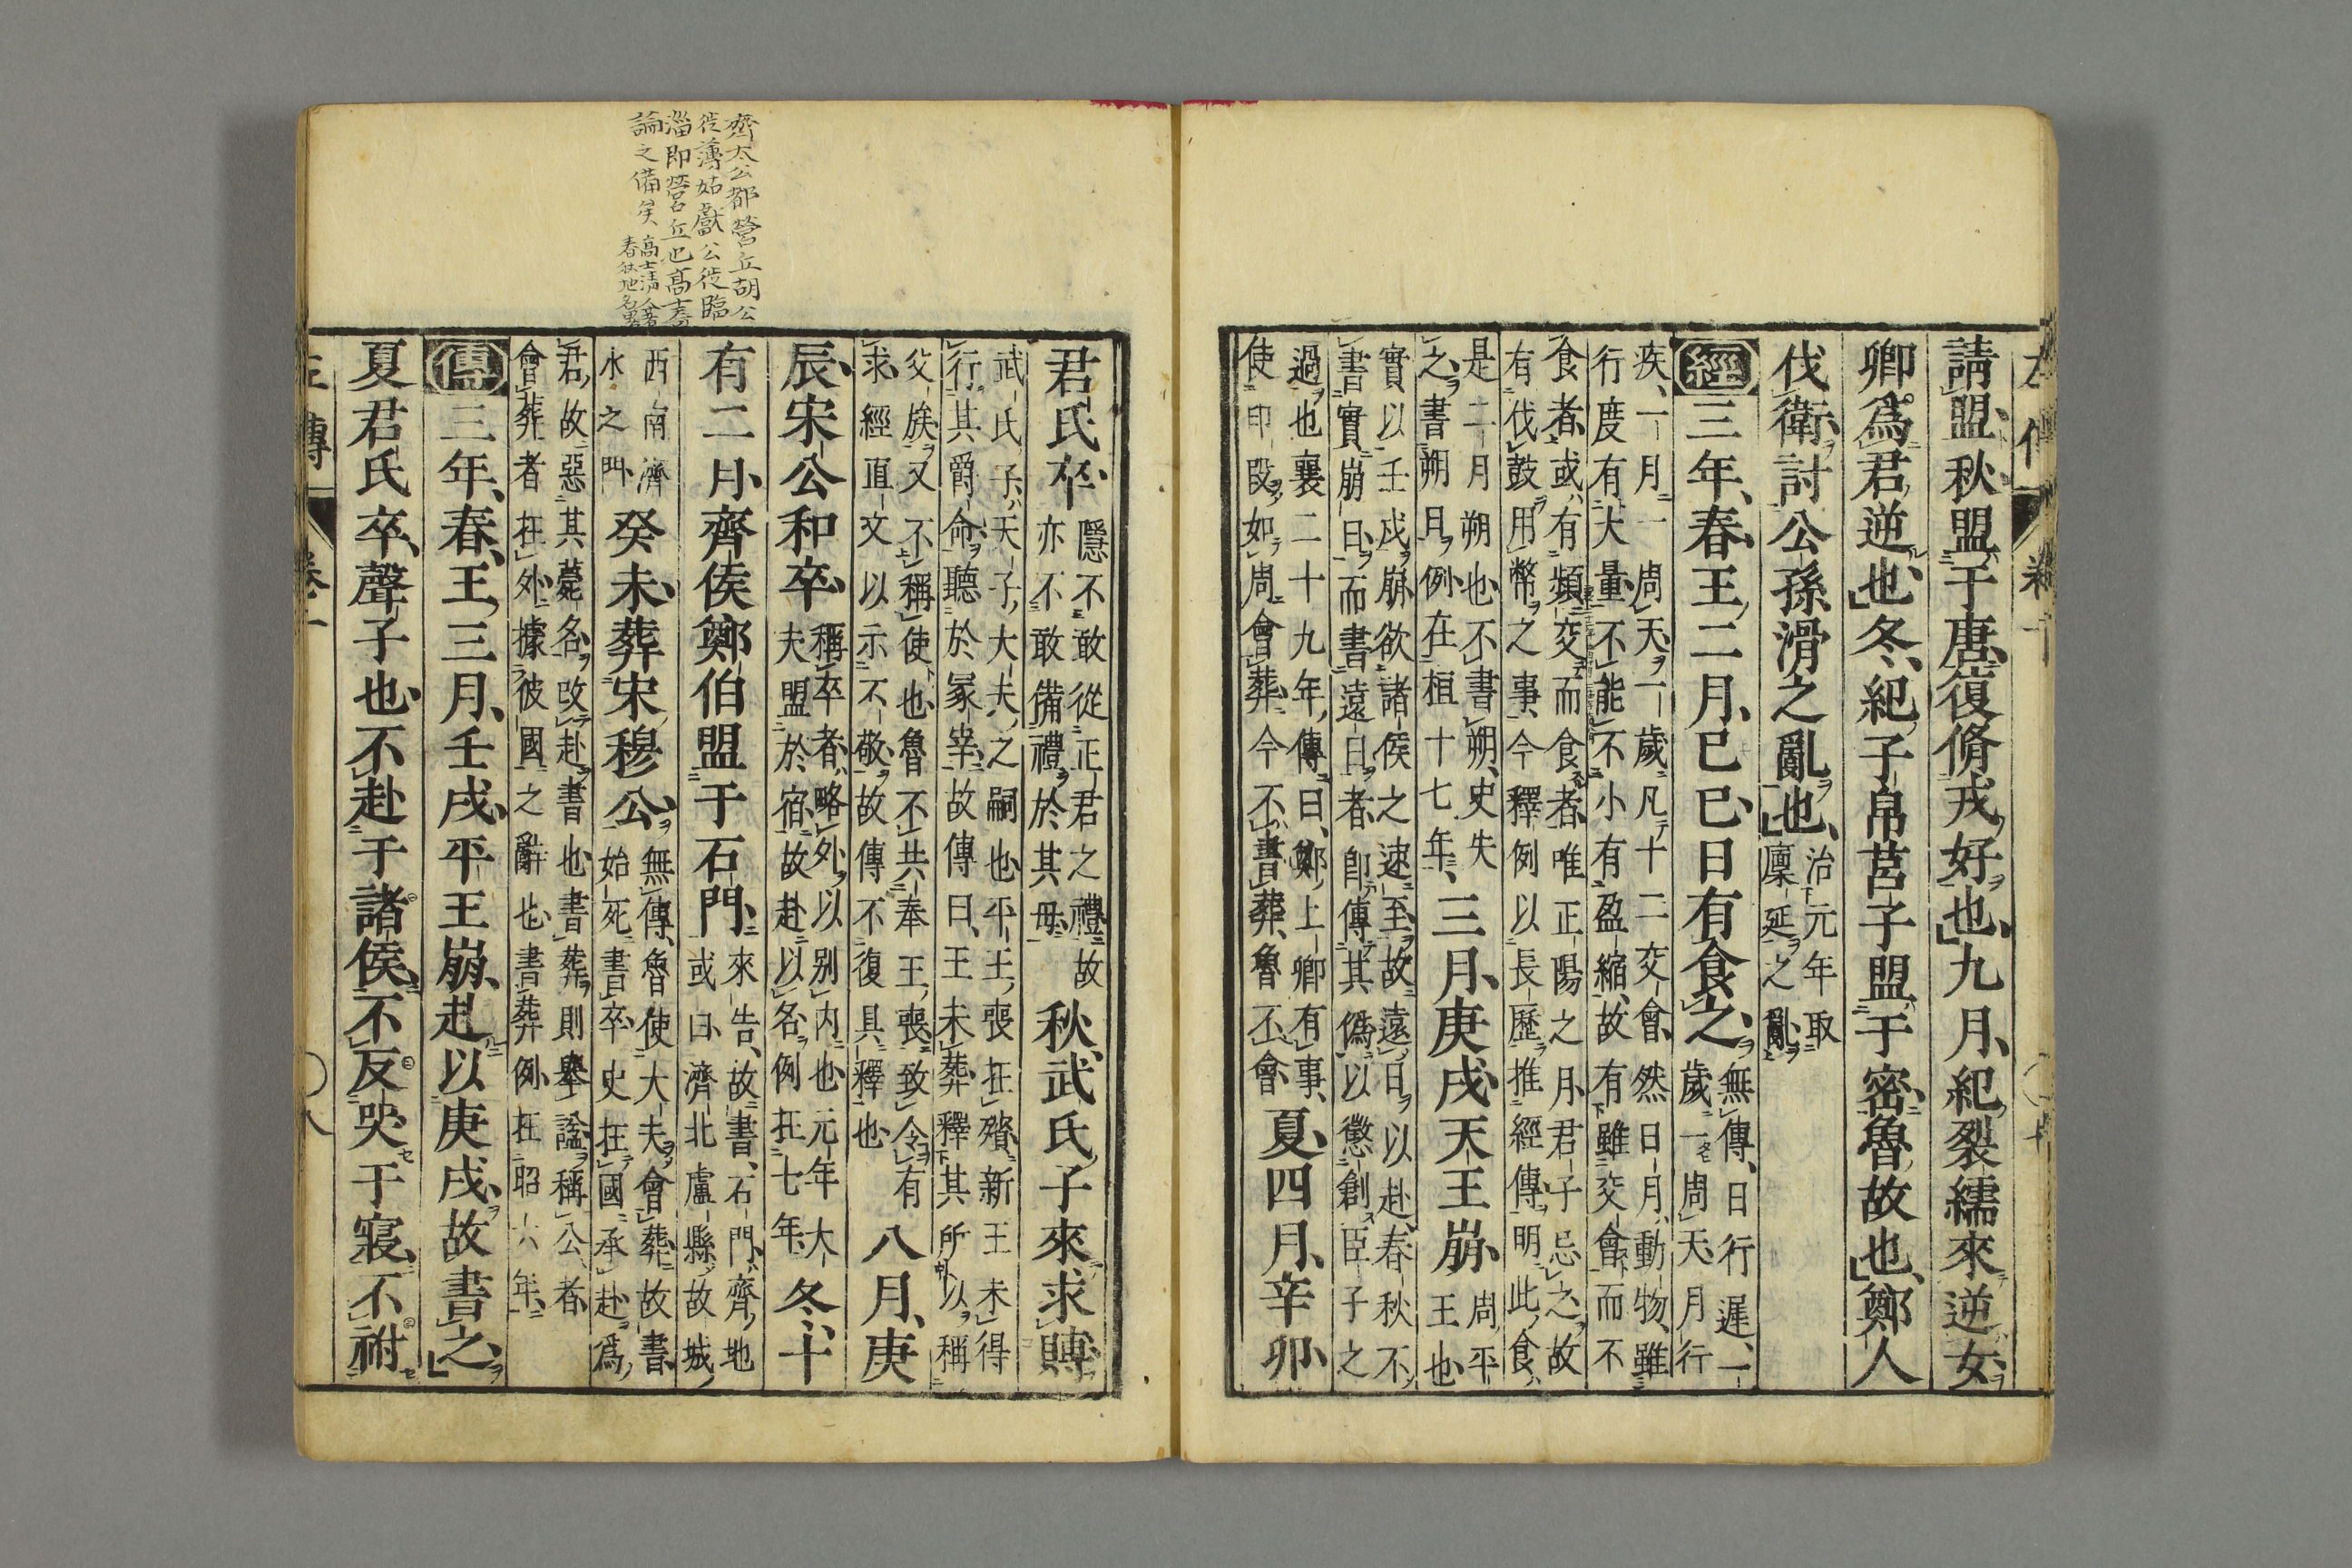 請盟秋盟于唐復脩戎好也九月紀裂繻來逆女
卿爲君逆也冬紀子帛莒子盟于密魯故也鄭人
伐衛討公孫滑之亂也
治元年取
廩延之亂
經三年春王二月己巳日有食之
無傳日行遲一
歲一周天月行
疾一月一周天一歲凡十二交會然日月動物雖
行度有大量不能不小有盈縮故有雖交會而不
食者或有頻交而食者唯正陽之月君子忌之故
有伐鼓用幣之事今釋例以長歷推經傳明此食
是二月朔也不書朔史失
之書朔日例在桓十七年
三月庚戌天王崩
周平
王也
實以壬戌崩欲諸侯之速至故遠日以赴春秋不
書實崩日而書遠日者即傳其僞以懲創臣子之
過也襄二十九年傳曰鄭上卿有事
使印段如周會葬今不書葬魯不會
夏四月辛卯
君氏卒
隱不敢從正君之禮故
亦不敢備禮於其母
秋武氏子來求賻
武氏子天子大夫之嗣也平王喪在殯新王未得
行其爵命聽於冢宰故傳曰王未葬釋其所以稱
父族又不稱使也魯不共奉王喪致令有
求經直文以示不敬故傳不復具釋也
八月庚
辰宋公和卒
稱卒者略外以別內也元年大
夫盟於宿故赴以名例在七年
冬十
有二月齊侯鄭伯盟于石門
來告故書石門齊地
或曰濟北盧縣故城
西南濟
水之門
癸未葬宋穆公
無傳魯使大夫會葬故書
始死書卒史在國承赴爲
君故惡其薨名改赴書也書葬則舉謚稱公者
會葬者在外據彼國之辭也書葬例在昭六年
傳三年春王三月壬戌平王崩赴以庚戌故書之
夏君氏卒聲子也不赴于諸侯不反哭于寢不祔
齊太公都營丘胡公
徙薄姑獻公徙臨
淄即營丘也高士奇
論之備矣